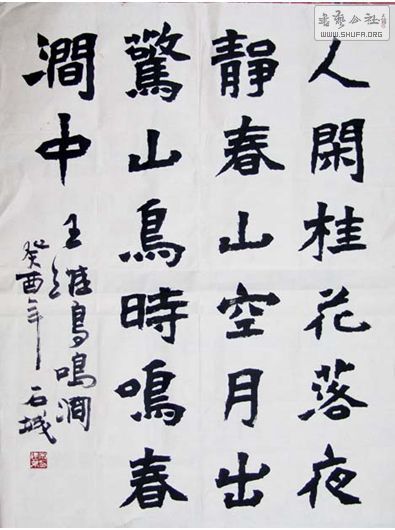 人閑桂花落夜
靜春山空月出
驚山鳥時鳴春
澗中
王維鳥鳴澗
癸酉年石城
WWW.SHUFA.ORG